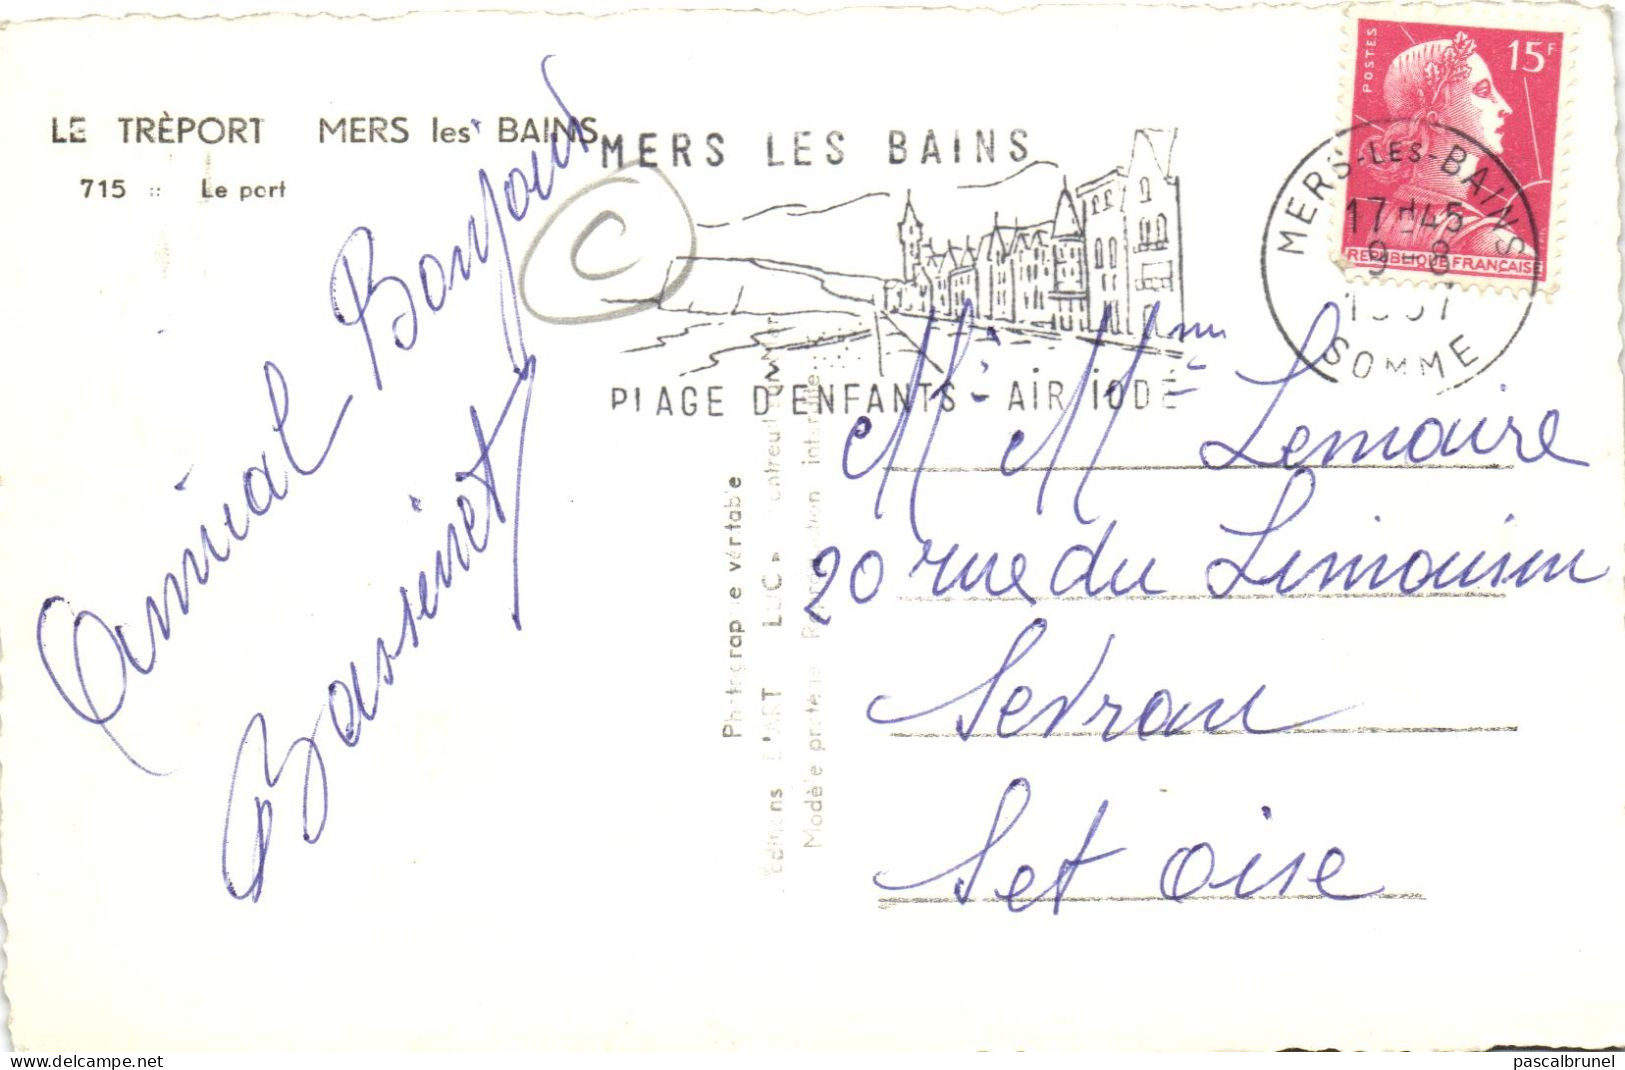 LE TRÈPORT MERS les BAINS
715 :: Le port
MERS LES BAINS
PLAGE D'ENFANTS - AIR IODÉ
POSTES
15F
RÉPUBLIQUE FRANÇAISE
MERS-LES-BAINS
17 H45
9-8
1957
SOMME
C
Amical Bonjour
Photographie véritable
Editions D'ART
Modèle protégé
Mr Mme Lemaire
20 rue du Limousin
Sevran
Set Oise
www.delcampe.net
pascalbrunel